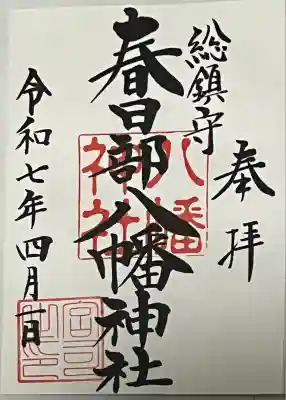 奉拝
総鎮守
春日部八幡神社
八幡神社
令和七年四月一日